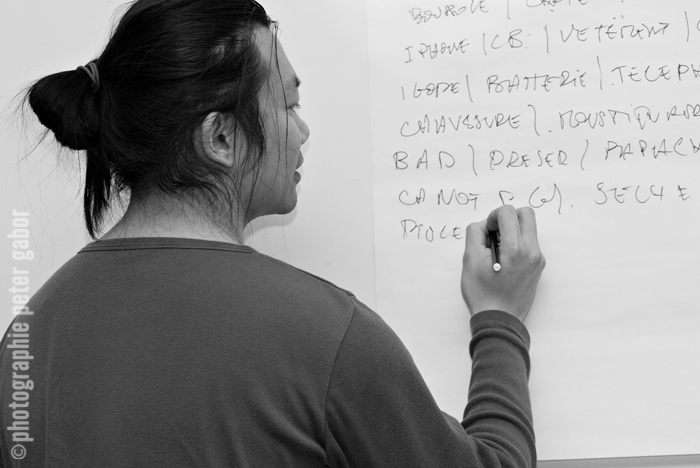 BOUSSOLE / CARTE /
IPHONE / CB / VETEMENT /
BATTERIE / TELEPH
CHAUSSURE / MOUSTIQUAI
BAD / /
CANOT SECHE
PIOLE
©photographie peter gabor